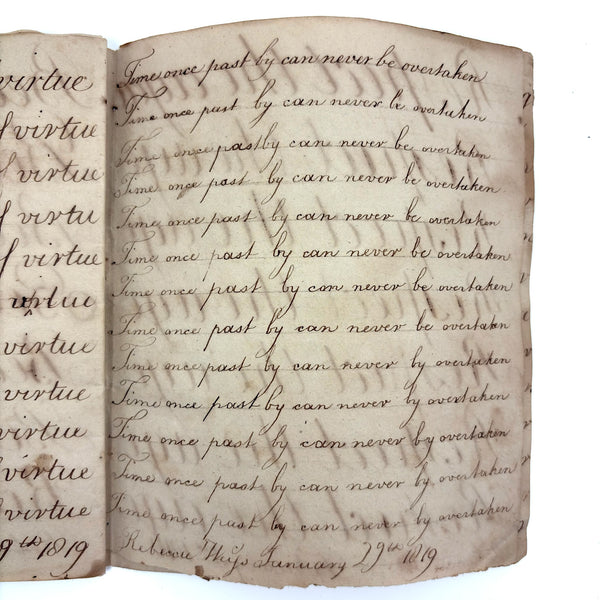 virtue
f virtue
f virtue
f virtu
f virtue
virtue
virtue
virtue
virtue
virtue
virtue
9th 1819
Time once past by can never be overtaken
Time once past by can never be overtaken
Time once past by can never be overtaken
Time once past by can never be overtaken
Time once past by can never be overtaken
Time once past by can never be overtaken
Time once past by can never be overtaken
Time once past by can never be overtaken
Time once past by can never be overtaken
Time once past by can never by overtaken
Time once past by can never by overtaken
Time once past by can never be overtaken
Time once past by can never be overtaken
Rebecca January 29th 1819